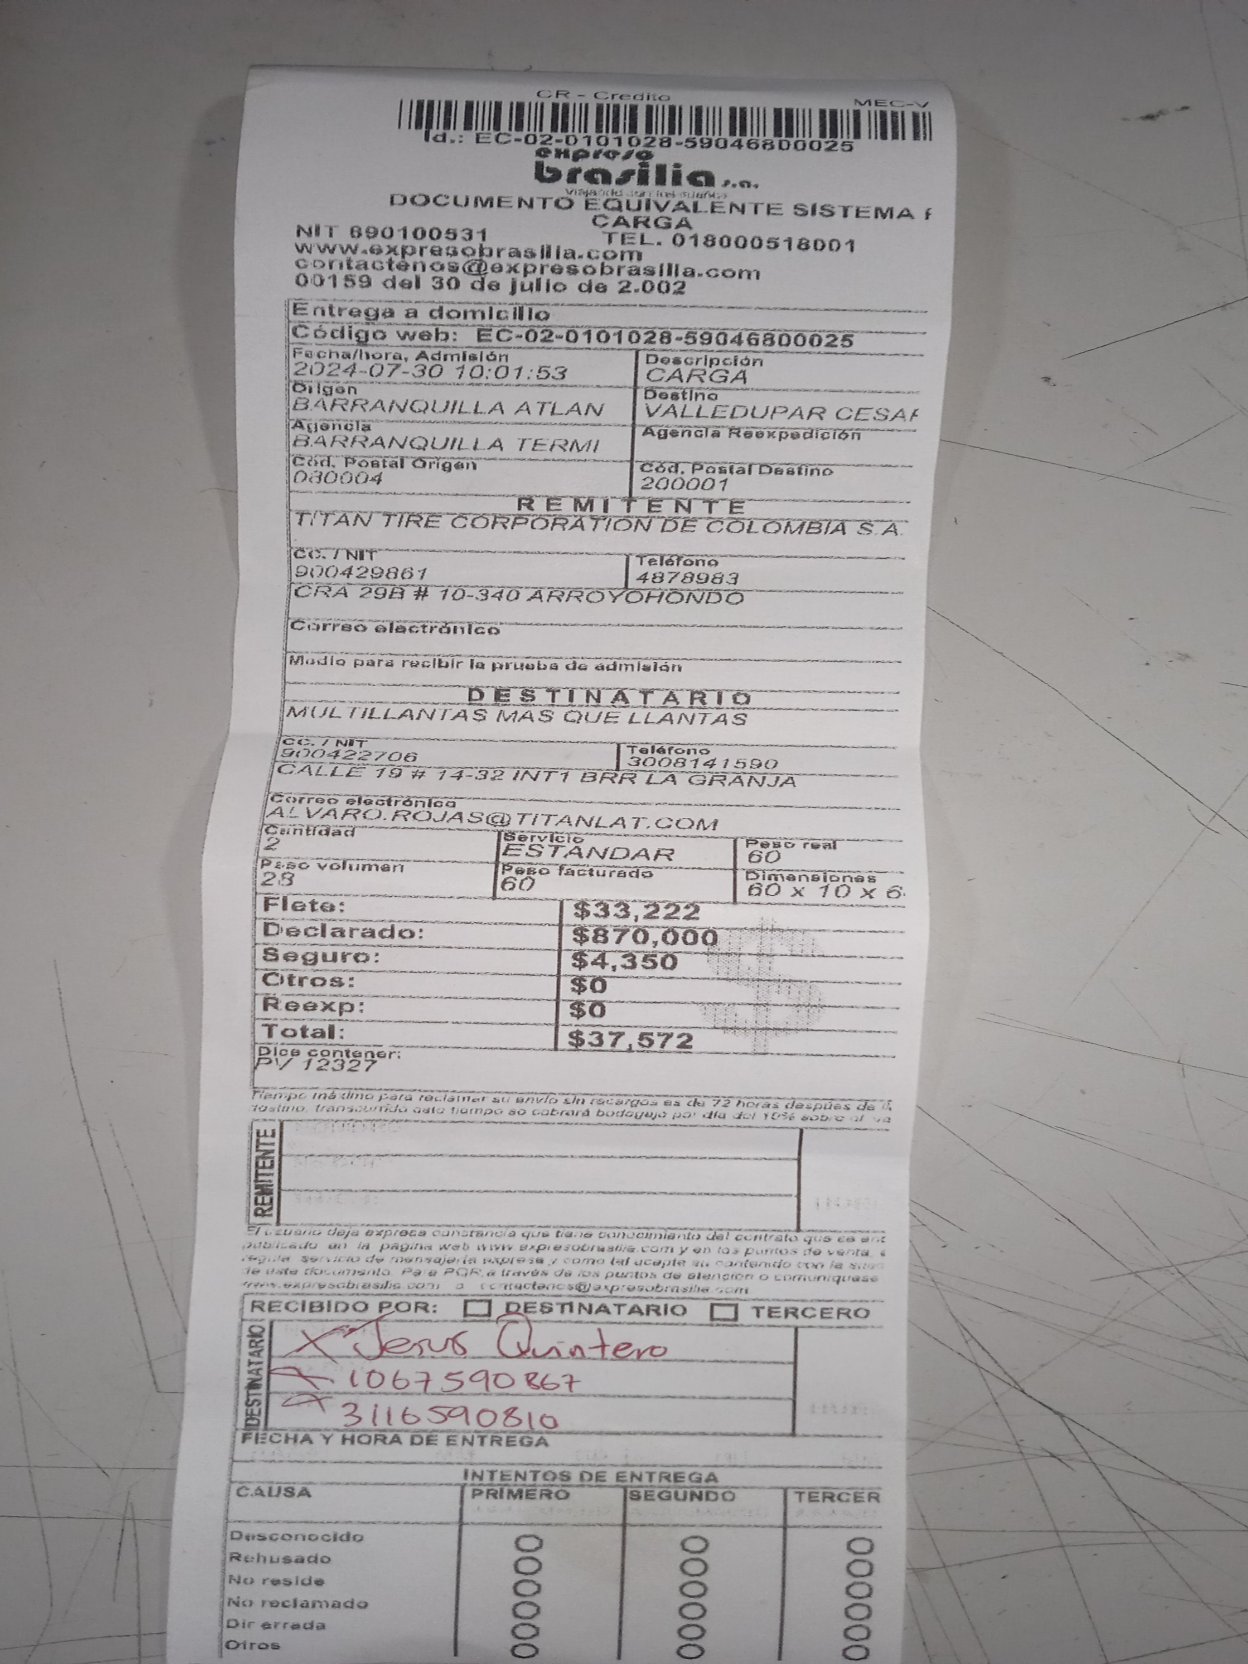 CR - Credito MEC-V
Id.: EC-02-0101028-59046800025
expreso
brasilia s.a.
DOCUMENTO EQUIVALENTE SISTEMA
CARGA
NIT 890100531 TEL. 018000518001
www.expresobrasilia.com
contactenos@expresobrasilia.com
00159 del 30 de julio de 2.002
Entrega a domicilio
Código web: EC-02-0101028-59046800025
Fecha/hora, Admisión Descripción
2024-07-30 10:01:53 CARGA
Origen Destino
BARRANQUILLA ATLAN VALLEDUPAR CESAR
Agencia Agencia Reexpedición
BARRANQUILLA TERMI
Cód. Postal Origen Cód. Postal Destino
080004 200001
REMITENTE
TITAN TIRE CORPORATION DE COLOMBIA S.A.
CC. / NIT Teléfono
900429861 4878983
CRA 29B # 10-340 ARROYOHONDO
Correo electrónico
Medio para recibir la prueba de admisión
DESTINATARIO
MULTILLANTAS MAS QUE LLANTAS
CC. / NIT Teléfono
900422706 3008141590
CALLE 19 # 14-32 INT1 BRR LA GRANJA
Correo electrónico
ALVARO.ROJAS@TITANLAT.COM
Cantidad Servicio Peso real
2 ESTANDAR 60
Peso volumen Peso facturado Dimensiones
28 60 60 x 10 x 6
Flete: $33,222
Declarado: $870,000
Seguro: $4,350
Otros: $0
Reexp: $0
Total: $37,572
Dice contener:
PV 12327
Tiempo máximo para reclamar su envío sin recargos es de 72 horas después de
transcurrido este tiempo se cobrará bodegaje por día del 10% sobre el va
REMITENTE
El usuario deja expresa constancia que tiene conocimiento del contrato que se
publicado en la página web www.expresobrasilia.com y en los puntos de venta,
regula servicio de mensajería expresa y como tal acepta su contenido con la
de este documento. Para PQR a través de los puntos de atención o comuníquese
www.expresobrasilia.com o contactenos@expresobrasilia.com
RECIBIDO POR: DESTINATARIO TERCERO
DESTINATARIO
X Jesus Quintero
1067590867
3116590810
FECHA Y HORA DE ENTREGA
INTENTOS DE ENTREGA
CAUSA PRIMERO SEGUNDO TERCER
Desconocido
Rehusado
No reside
No reclamado
Dir errada
Otros